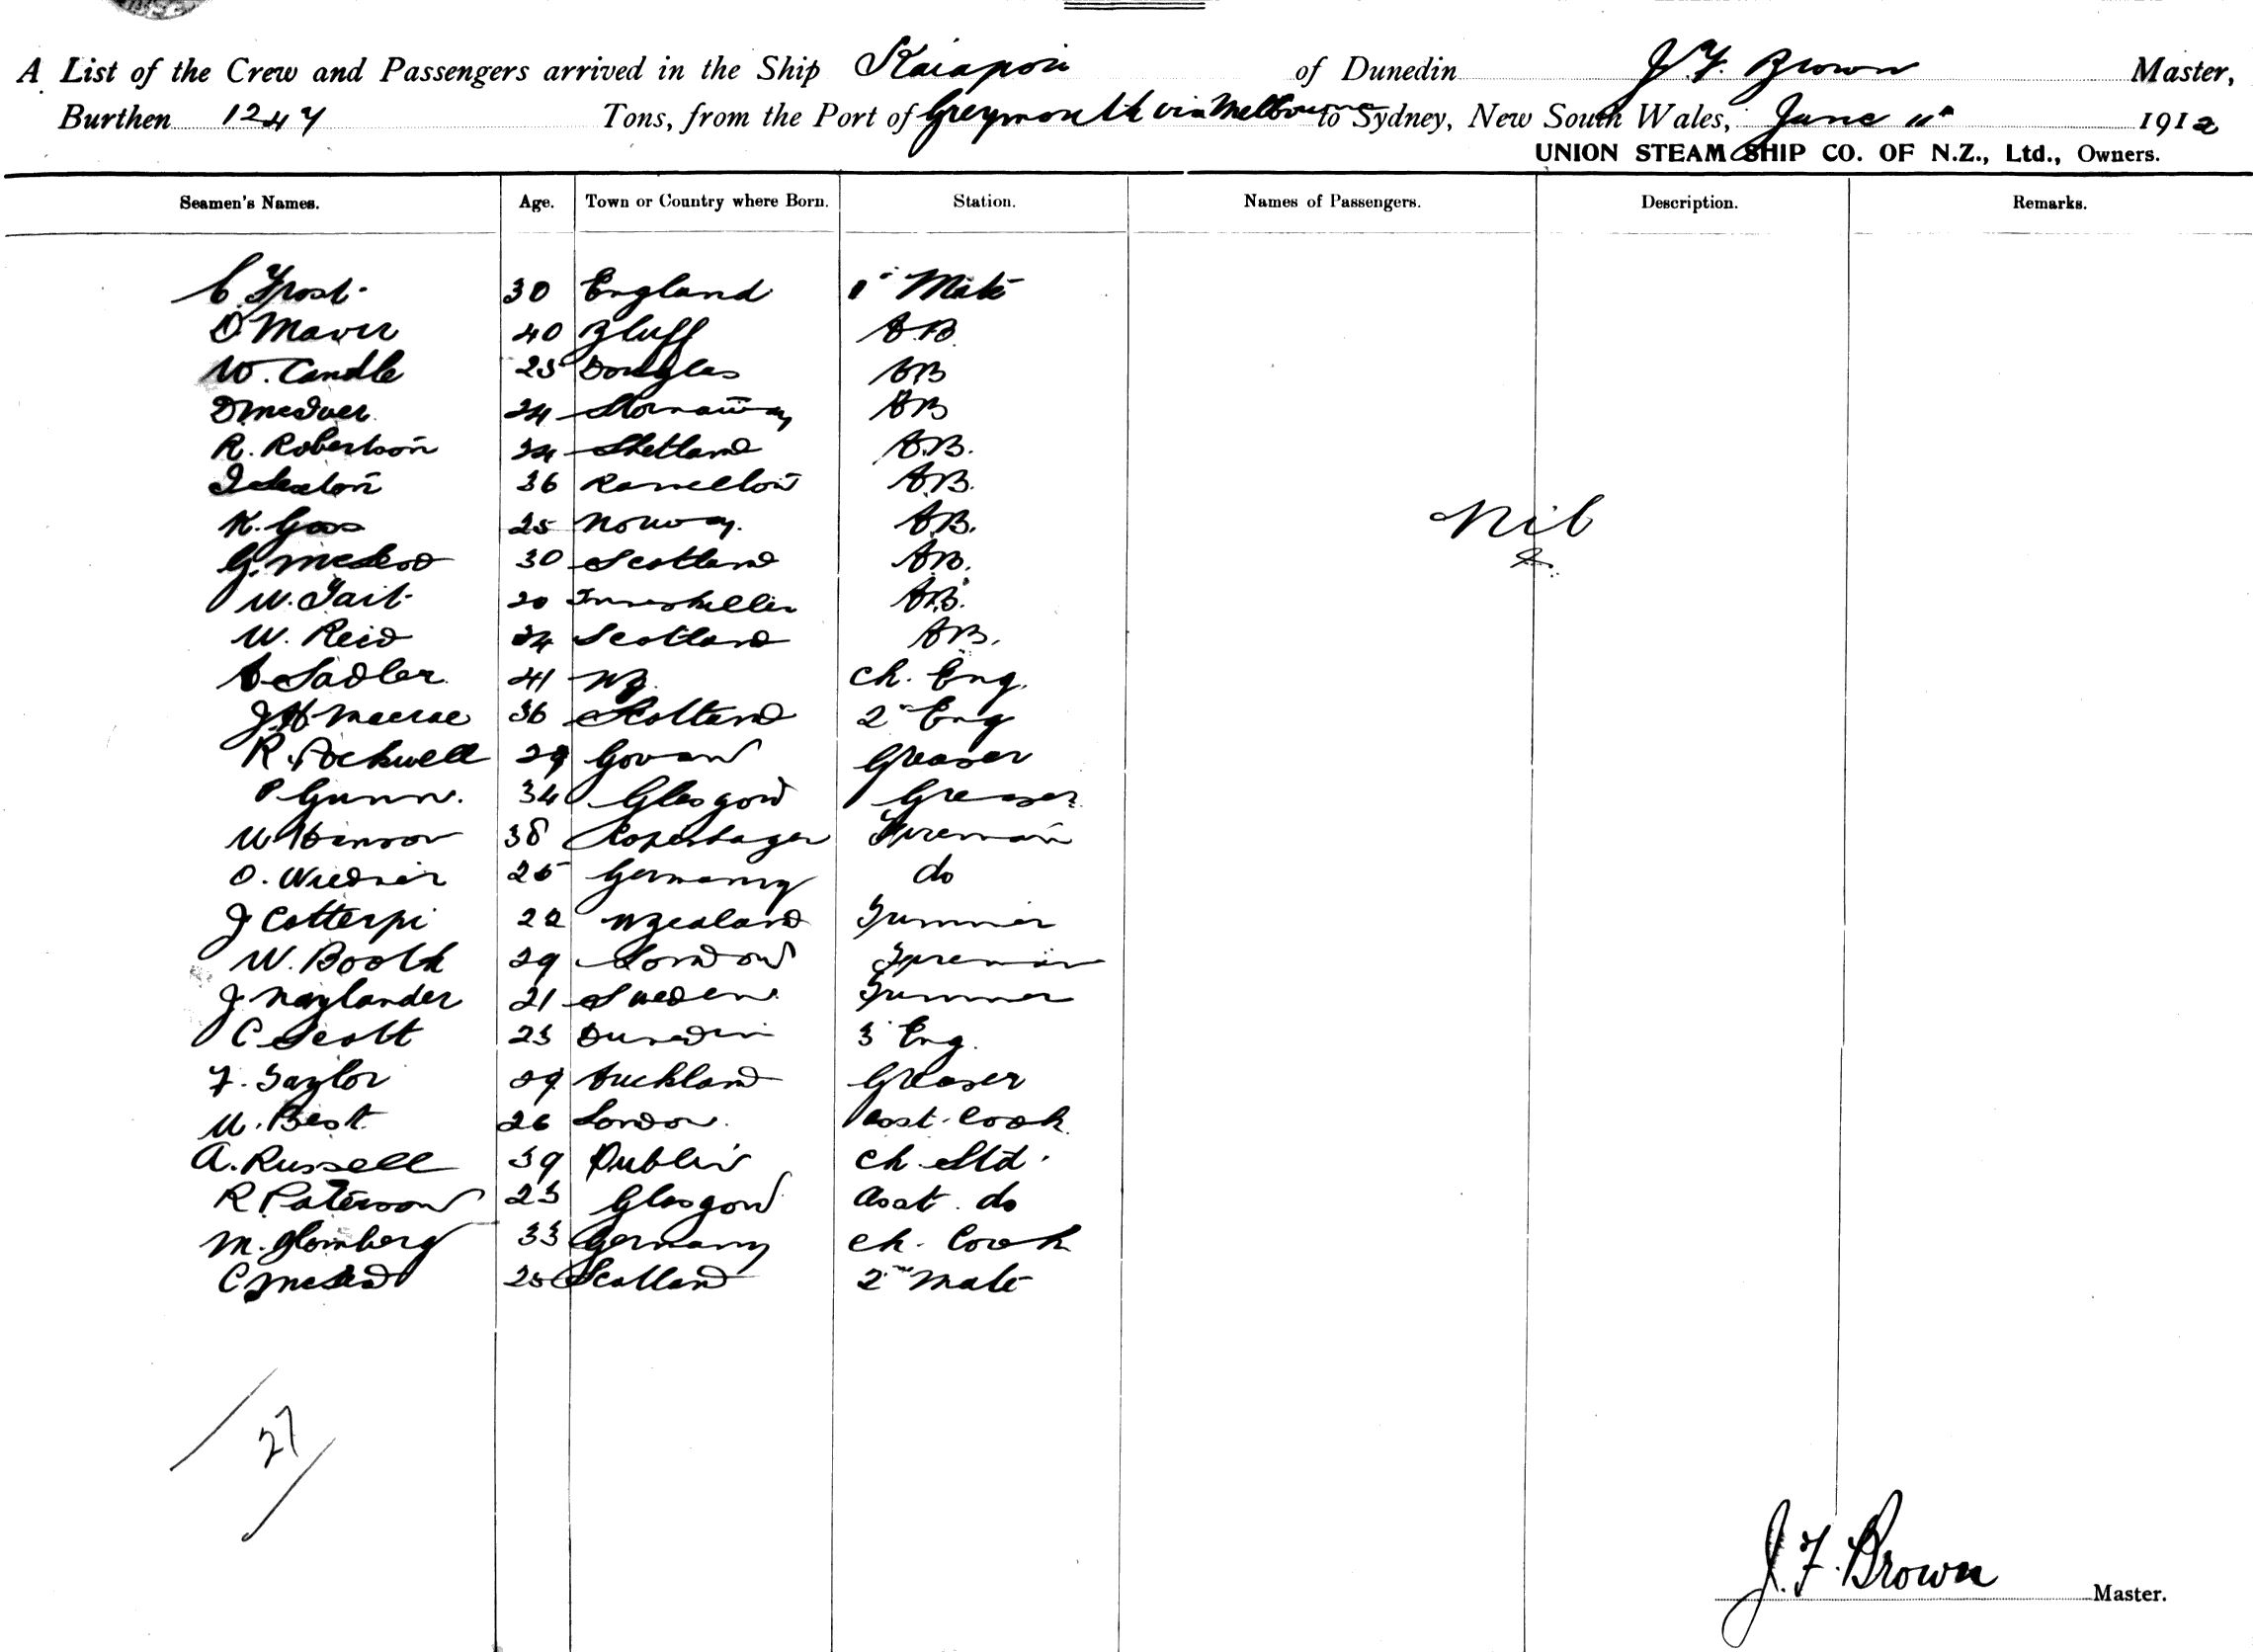 A List of the Crew and Passengers arrived in the Ship Kaiapoi of Dunedin J. F. Brown Master,
Burthen 1247 Tons, from the Port of Greymouth via Melbourne to Sydney, New South Wales, June 11" 1912
UNION STEAM SHIP CO. OF N.Z., Ltd., Owners.
Seamen's Names. Age. Town or Country where Born. Station. Names of Passengers. Description. Remarks.
C. Frost 30 England 1" Mate
D. Maver 40 Bluff A.B.
W. Candle 25 Douglas AB
D McIver 24 Stornaway AB
R. Robertson 24 Shetland A.B.
Sexton 36 A.B.
K. Gass 25 Norway. A.B.
Nil
G. McLeod 30 Scotland A.B.
W. Tait 20 A.B.
W. Reid 24 Scotland A.B.
A Sadler 41 NZ. Ch. Eng.
J H Macrae 36 Scotland 2" Eng
R. Rockwell 29 Govan Greaser
P Gunn. 34 Glasgow Greaser
W Hanson 38 Kopenhagen Fireman
O. 25 Germany do
J Cotterpi 22 N Zealand Trimmer
W. Booth 29 London Fireman
J. Naylander 21 Sweden Trimmer
C Scott 23 Dunedin 3" Eng.
F. Taylor 29 Auckland Greaser
W. Best 26 London. Asst. Cook
A. Russell 39 Dublin Ch. Std.
R Paterson 23 Glasgow Asst. do
M. Homberg 33 Germany Ch. Cook
C McLeod 25 Scotland 2nd Mate
27
J. F. Brown Master.